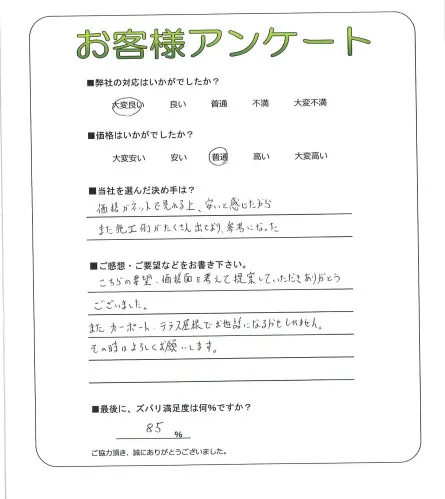 お客様アンケート
■弊社の対応はいかがでしたか？
大変良い 良い 普通 不満 大変不満
■価格はいかがでしたか？
大変安い 安い 普通 高い 大変高い
■当社を選んだ決め手は？
価格がネットで見れる上、安いと感じたから
また施工例がたくさん出ており、参考になった
■ご感想・ご要望などをお書き下さい。
こちらの要望・価格面を考えて提案していただきありがとう
ございました。
また カーポート・テラス屋根でお世話になるかもしれません。
その時はよろしくお願いします。
■最後に、ズバリ満足度は何%ですか？
85 %
ご協力頂き、誠にありがとうございました。